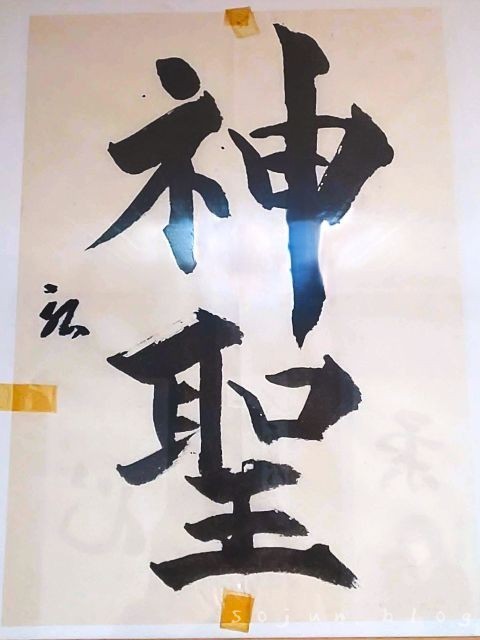 神
聖
sojun blog